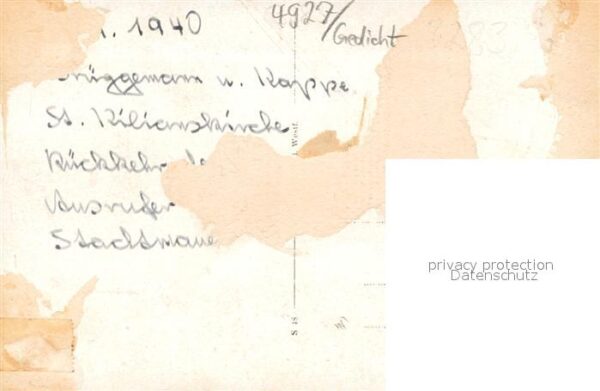 1940
4927/
Gedicht
Brüggemann u. Kappe
St. Kilianskirche
Rückkehr
Ausrufer
Stadtmaue
Westf.
privacy protection
Datenschutz